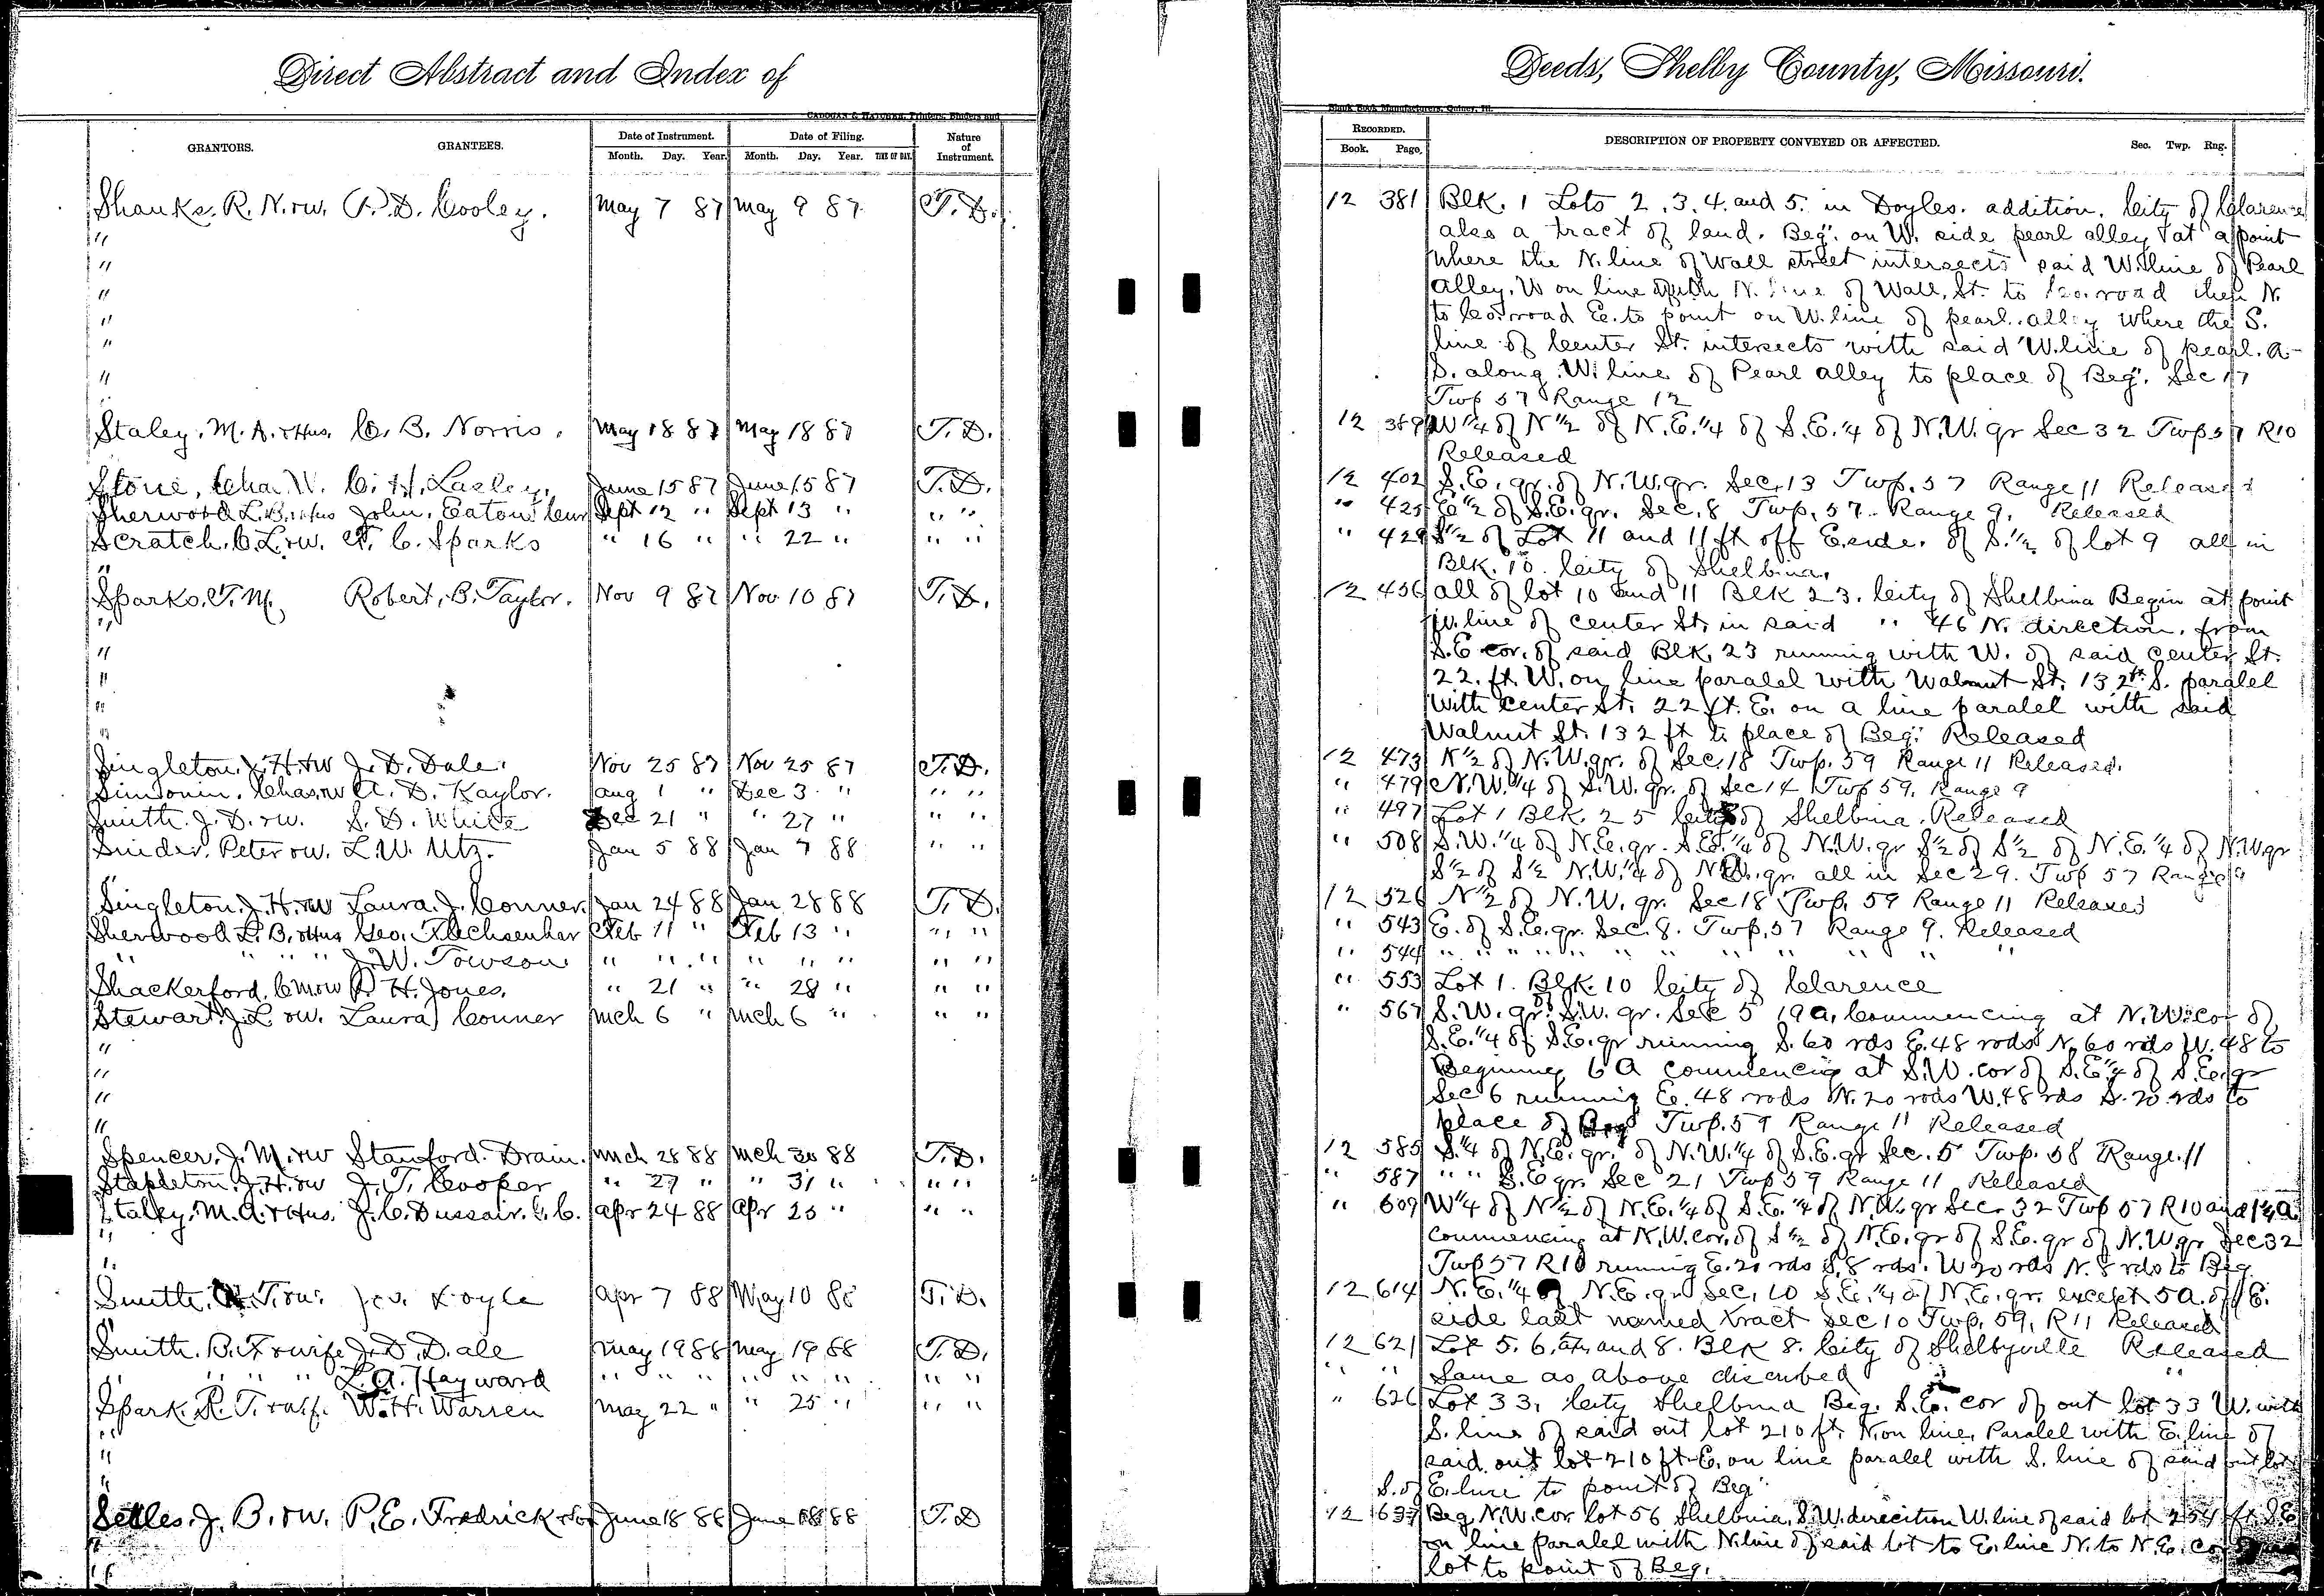 Direct Abstract and Index of
CADOGAN & HATCHER, Printers, Binders and
GRANTORS. GRANTEES. Date of Instrument. Date of Filing. Nature of Instrument.
Month. Day. Year. Month. Day. Year. TIME OF DAY.
Shanks, R. N. rw. P. D. Cooley. May 7 87 May 9 87 T. D.
"
"
"
"
"
"
Staley, M. A. & Hus. C. B. Norris. May 18 87 May 18 87 T. D.
Stone, Cha. W. C. H. Lasley. June 15 87 June 15 87 T. D.
Sherwood L. B. & Hus John Eaton June Sept 12 " Sept 13 " " "
Scratch, C. L. rw. F. C. Sparks " 16 " " 22 " " "
"
Sparks, T. M. Robert, B. Taylor. Nov 9 87 Nov 10 87 T. D.
"
"
"
"
"
Singleton, J. H. rw J. D. Dale. Nov 25 87 Nov 25 87 T. D.
Simonin, Chas. rw A. D. Kaylor. Aug 1 " Dec 3 " " "
Smith. J. D. rw. S. D. White Dec 21 " " 27 " " "
Snider, Peter rw. L. W. Utz. Jan 5 88 Jan 7 88 " "
"
Singleton, J. H. rw Laura J. Conner. Jan 24 88 Jan 28 88 T. D.
Sherwood L. B. & Hus Geo. Flechsenhar Feb 11 " Feb 13 " " "
" " " " J. W. Towson " " " " " " " "
Shackerford, rw H. Jones. " 21 " " 28 " " "
Stewart J. L. rw. Laura J Conner Mch 6 " Mch 6 " " "
"
"
"
"
Spencer, J. M. rw Stanford Drain. Mch 28 88 Mch 30 88 T. D.
Stapleton, J. H. rw J. T. Cooper " 27 " " 31 " " "
Staley, M. A. & Hus. J. C. Dussair. Apr 24 88 Apr 25 " " "
"
"
Smith, T. rw. Doyle Apr 7 88 May 10 88 T. D.
"
Smith. B. F. wife J. D. Dale May 19 88 May 19 88 T. D.
" " " " L. A. Hayward " " " " " " " "
Spark. R. T. W. H. Warren May 22 " " 25 " " "
"
"
"
Settles, J. B. rw. P. E. Fredrick June 18 88 June 18 88 T. D
"
"
Deeds, Shelby County, Missouri.
Blank Book Manufacturers, Quincy, Ill.
RECORDED. DESCRIPTION OF PROPERTY CONVEYED OR AFFECTED. Sec. Twp. Rng.
Book. Page.
12 381 Blk. 1 Lots 2, 3, 4, and 5. in Doyles. addition, City of Clarence
also a tract of land. Beg. on W. side pearl alley at a point
where the N. line of Wall street intersects said W. line of Pearl
alley, W on line with N. line of Wall, St. to Co. road then N.
to Co. road E. to point on W. line of pearl alley where the S.
line of Center St. intersects with said W. line of pearl. a-
S. along W. line of Pearl alley to place of Beg. Sec 17
Twp 57 Range 12
12 389 W 1/4 of N 1/2 of N. E. 1/4 of S. E. 1/4 of N. W. qr Sec 32 Twp 57 R10
Released
12 402 S. E. qr. of N. W. qr. Sec. 13 Twp. 57 Range 11 Released
" 425 E 1/2 of S. E. qr. Sec. 8 Twp. 57. Range 9. Released
" 429 S 1/2 of Lot 11 and 11 ft off E. side. of S. 1/2 of lot 9 all in
Blk. 10. City of Shelbina.
12 456 all of lot 10 and 11 Blk 23. City of Shelbina Begin at point
W. line of center St. in said " 46 N. direction. from
S. E cor. of said Blk. 23 running with W. of said center St.
22. ft. W. on line paralel with Walnut St. 132 ft. S. paralel
with center St. 22 ft. E. on a line paralel with said
Walnut St. 132 ft to place of Beg. Released
12 473 N 1/2 of N. W. qr. of Sec. 18 Twp. 59 Range 11 Released.
" 479 N. W. 1/4 of S. W. qr. of Sec 14 Twp 59. Range 9
" 497 Lot 1 Blk. 25 City of Shelbina. Released
" 508 S. W. 1/4 of N. E. qr. S. E. 1/4 of N. W. qr S 1/2 of S 1/2 of N. E. 1/4 of N. W. qr
S 1/2 of S 1/2 N. W. 1/4 of N. qr. all in Sec 29. Twp 57 Range 9
12 526 N 1/2 of N. W. qr. Sec 18 Twp. 59 Range 11 Released
" 543 E. of S. E. qr. Sec. 8. Twp. 57 Range 9. Released
" 544 " " " " " " " " " " "
" 553 Lot 1. Blk. 10 City of Clarence
" 567 S. W. qr. of S. W. qr. Sec 5 19 a. Commencing at N. W. cor of
S. E. 1/4 of S. E. qr running S. 60 rds E. 48 rods N. 60 rds W. 48 to
Beginning 6 A commencig at S. W. cor of S. E 1/4 of S. E. qr
Sec 6 running E. 48 rods N. 20 rods W. 48 rds S. 20 rds to
place of Beg Twp. 59 Range 11 Released
12 585 S 1/4 of N. E. qr. of N. W. 1/4 of S. E. qr Sec. 5 Twp. 58 Range. 11
" 587 " " S. E qr. Sec 21 Twp 59 Range 11 Released
" 609 W 1/4 of N 1/2 of N. E. 1/4 of S. E. 1/4 of N. W. qr Sec. 32 Twp 57 R 10 and
commencing at N. W. cor. of S 1/2 of N. E. qr of S. E. qr of N. W qr Sec 32
Twp 57 R 10 running E. 20 rds S. 8 rds. W 20 rds N. 8 rds to Beg.
12 614 N. E. 1/4 of N. E. qr Sec. 10 S. E. 1/4 of N. E. qr. except 5 a. off E.
side last named tract Sec 10 Twp. 59, R 11 Released
12 621 Lot 5. 6. and 8. Blk 8. City of Shelbyville Released
" " Same as above discribed "
" 626 Lot 33, City Shelbina Beg. S. E. cor of out lot 33 W. with
S. line of said out lot 210 ft. N. on line, Paralel with E. line of
said out lot 210 ft E. on line paralel with S. line of said out lot
S. of E. line to point of Beg
12 637 Beg. N. W. cor lot 56 Shelbina, S. W. direcition W. line of said lot 254 ft. S. E
on line paralel with N. line of said lot to E. line N. to N. E. cor
lot to point of Beg.